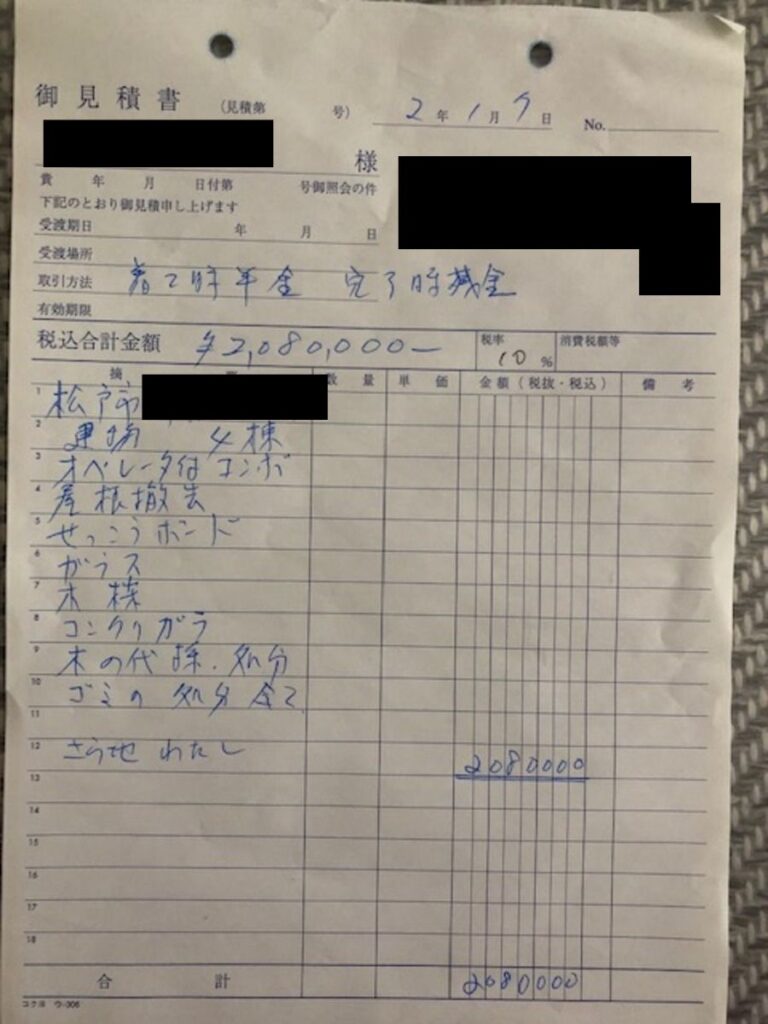 御見積書 (見積第 号) 2年1月7日 No.
様
貴 年 月 日付第 号御照会の件
下記のとおり御見積申し上げます
受渡期日 年 月 日
受渡場所
取引方法 着工時半金 完了時残金
有効期限
税込合計金額 ¥2,080,000- 税率 10% 消費税額等
摘 数量 単価 金額(税抜・税込) 備考
1 松戸市
2 4棟
3 オペレータ付 コンボ
4 屋根撤去
5 せっこうボード
6 ガラス
7 木
8 コンクリガラ
9 木の代採.処分
10 ゴミの処分全て
11
12 さら地わたし 2080000
13
14
15
16
17
18
合計 2080000
コクヨ ウ-306